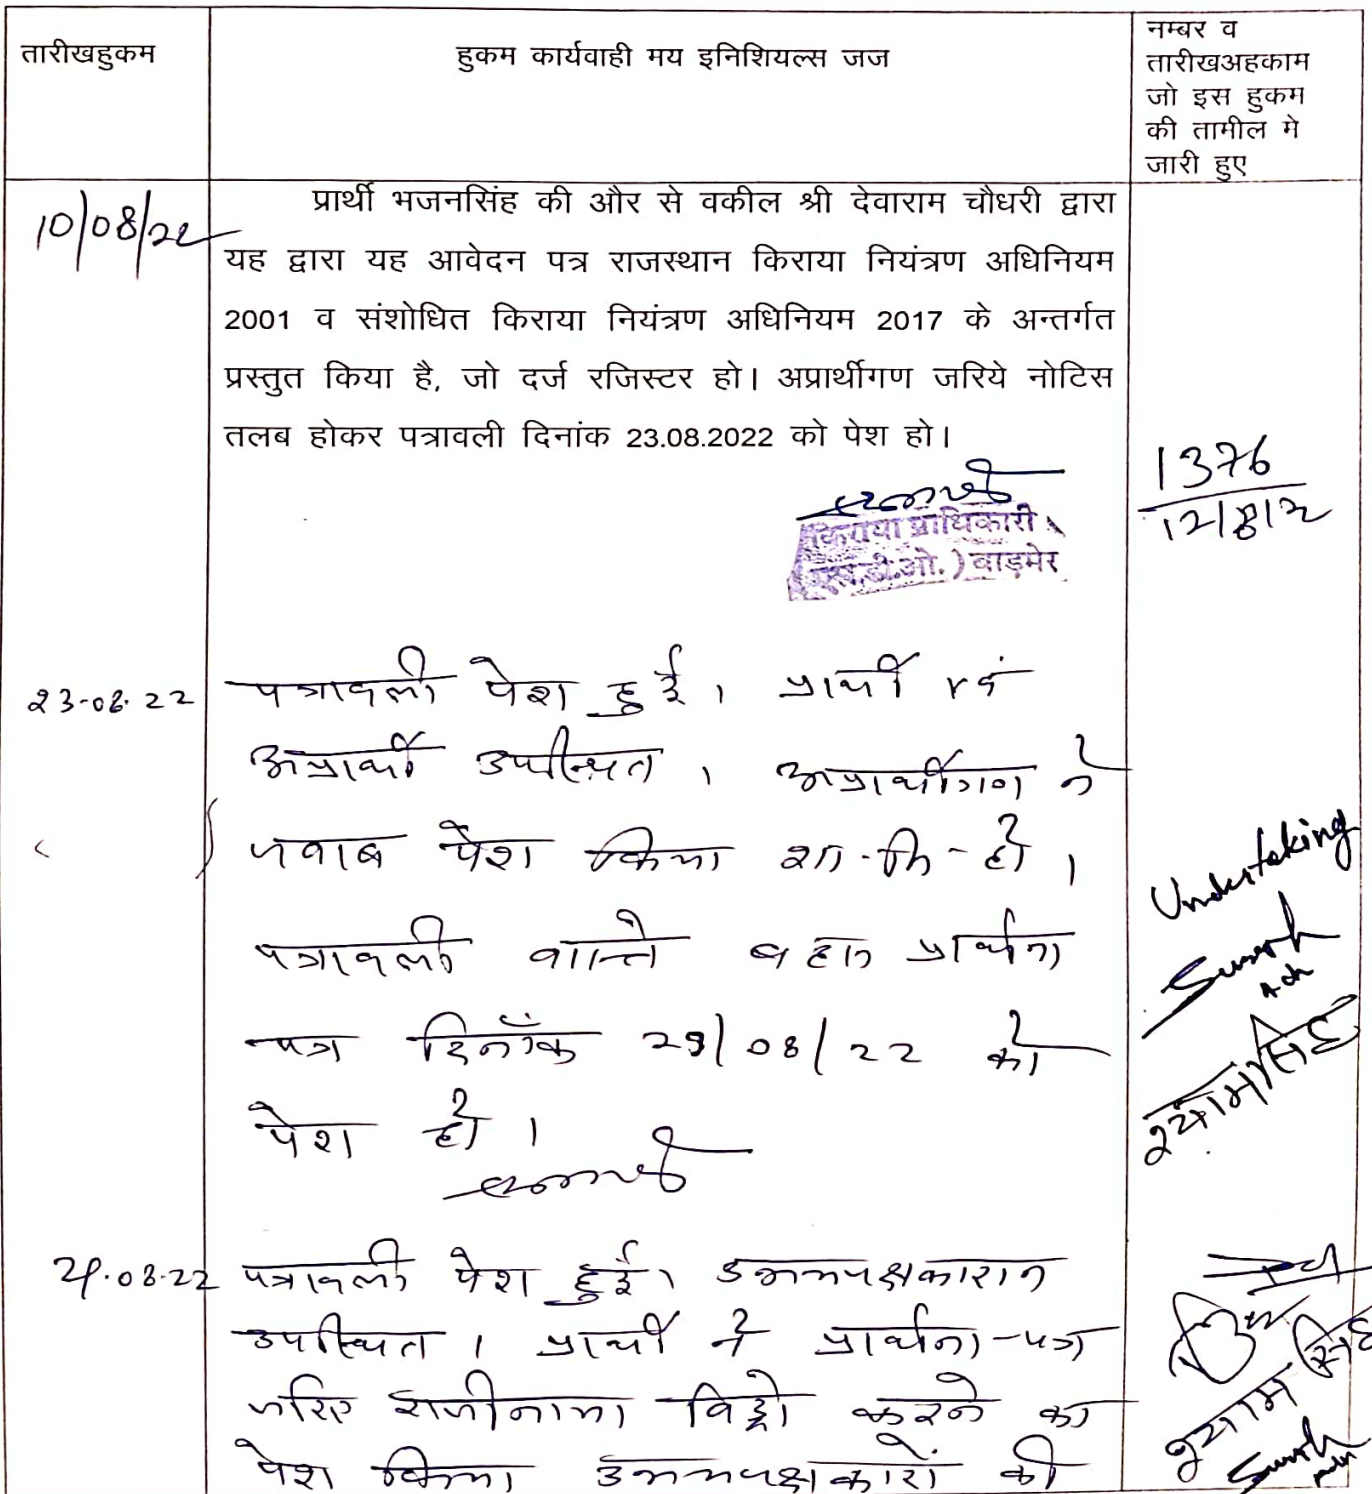 तारीखहुकम
हुकम कार्यवाही मय इनिशियल्स जज
नम्बर व
तारीखअहकाम
जो इस हुकम
की तामील मे
जारी हुए
10/08/22
प्रार्थी भजनसिंह की और से वकील श्री देवाराम चौधरी द्वारा
यह द्वारा यह आवेदन पत्र राजस्थान किराया नियंत्रण अधिनियम
2001 व संशोधित किराया नियंत्रण अधिनियम 2017 के अन्तर्गत
प्रस्तुत किया है, जो दर्ज रजिस्टर हो। अप्रार्थीगण जरिये नोटिस
तलब होकर पत्रावली दिनांक 23.08.2022 को पेश हो।
किराया प्राधिकारी
(एस.डी.ओ.) बाड़मेर
1376
23-08-22
पत्रावली पेश हुई। प्रार्थी एवं
अप्रार्थी उपस्थित। अप्रार्थीगण ने
जवाब पेश किया शा-मि-हो।
पत्रावली वास्ते बहस प्रार्थना
पत्र दिनाँक 29/08/22 को
पेश हो।
Undertaking
Suresh
श्यामसिंह
29.08.22
पत्रावली पेश हुई। उभयपक्षकारान
उपस्थित। प्रार्थी ने प्रार्थना-पत्र
जरिए राजीनामा विड्रो करने का
पेश किया उभयपक्षकारों की
श्याम सिंह
Suresh